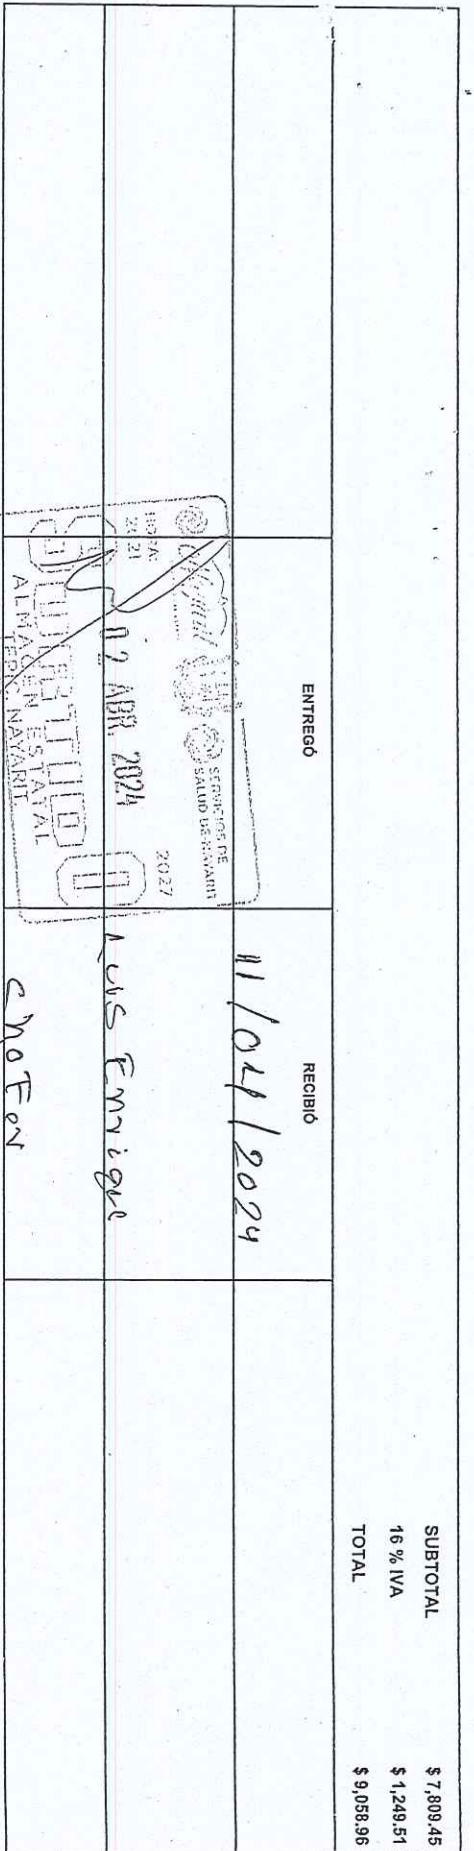 SUBTOTAL $ 7,809.45
16 % IVA $ 1,249.51
TOTAL $ 9,058.96
ENTREGÓ RECIBIÓ
SERVICIOS DE
SALUD DE NAYARIT
2027
HORA:
ABR. 2024
ALMACEN ESTATAL
TEPIC, NAYARIT
11/04/2024
Luis Enrique
choFer